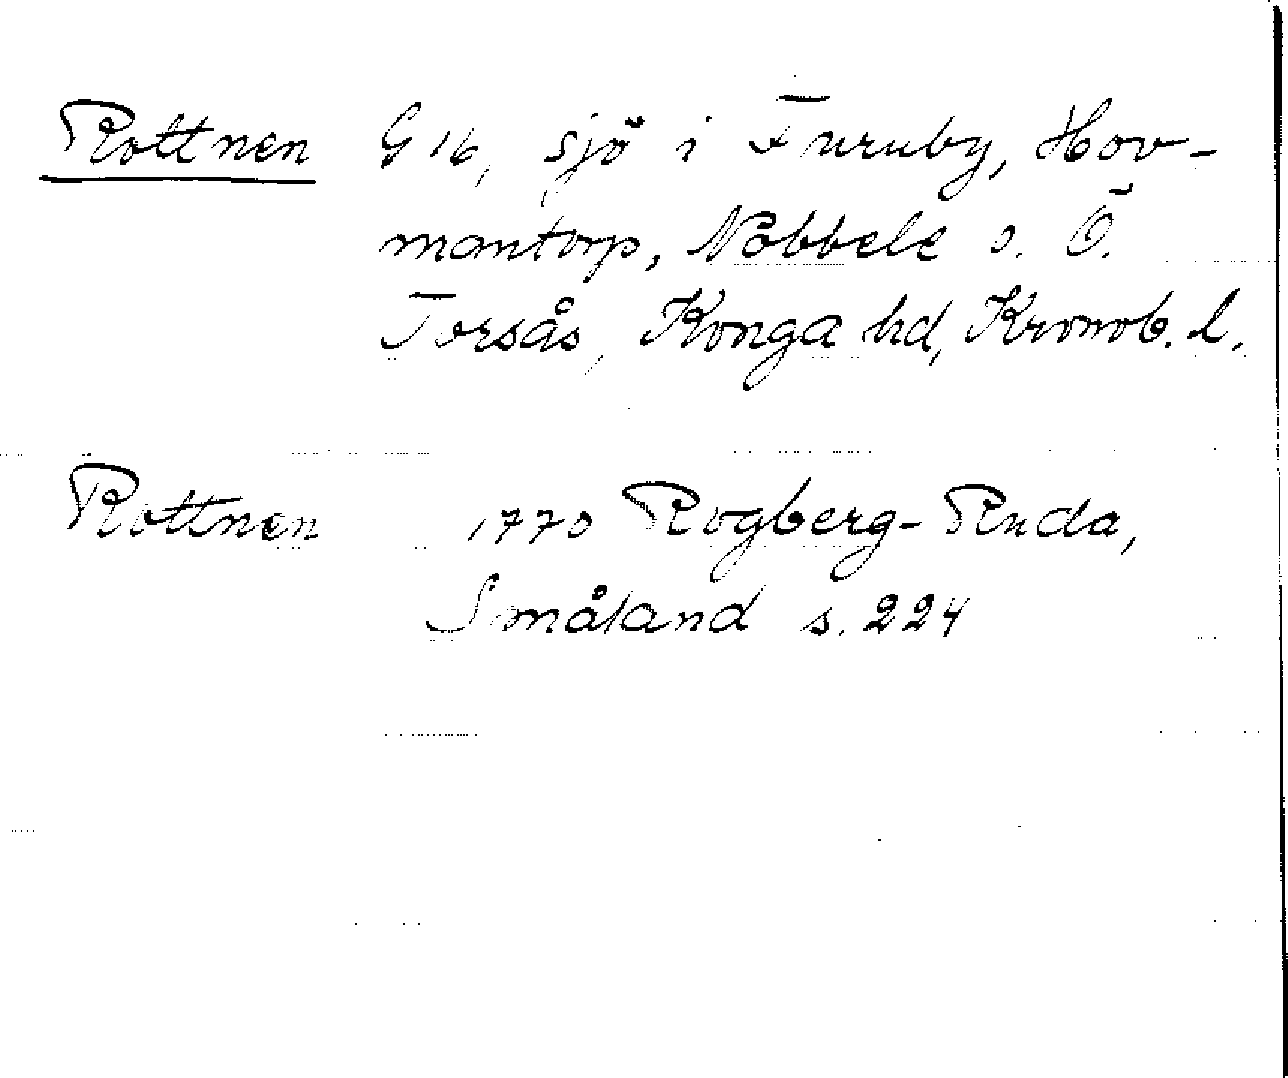 Rottnen G 16, sjö i Furuby, Hov-
mantorp, Nöbbele o. Ö.
Torsås, Konga hd, Kronob. l.
Rottnen 1770 Rogberg-Ruda,
Småland s. 224